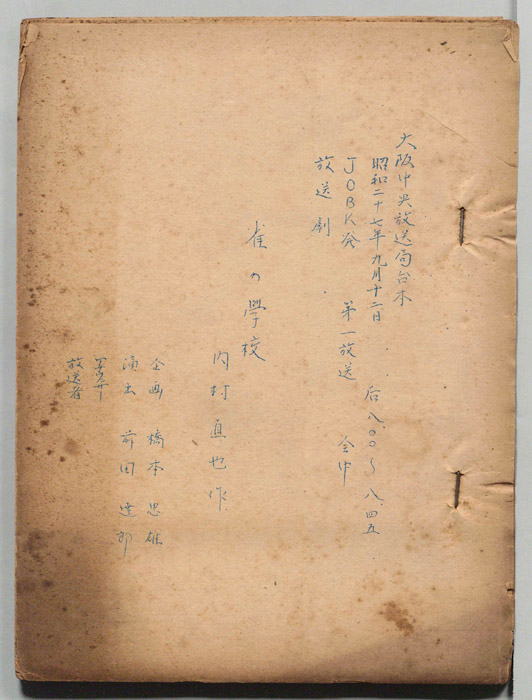 大阪中央放送局台本
昭和二十七年九月十二日 后八.〇〇〜八.四五
JOBK発 第一放送 全中
放送劇
雀の學校
内村直也作
企画 橋本忠雄
演出 前田達郎
放送者